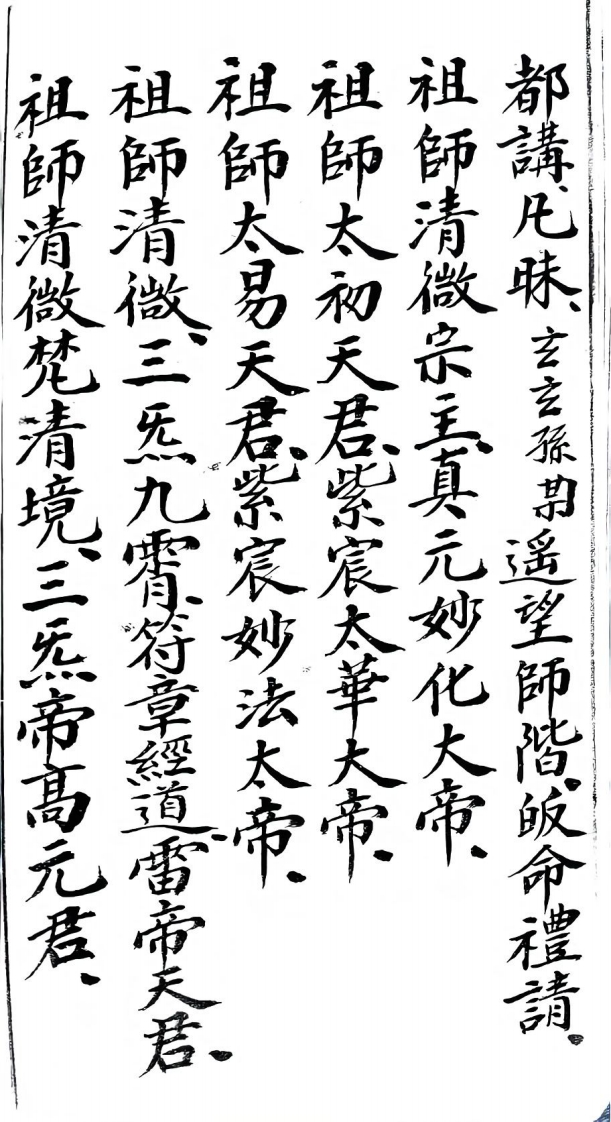 都講、凡昧、玄玄孫某遥望師階、皈命禮請、
祖師清微宗主、真元妙化大帝、
祖師太初天君、紫宸太華大帝、
祖師太易天君、紫宸妙法太帝、
祖師清微、三炁九霄、符章經道、雷帝天君、
祖師清微梵清境、三炁帝髙元君、